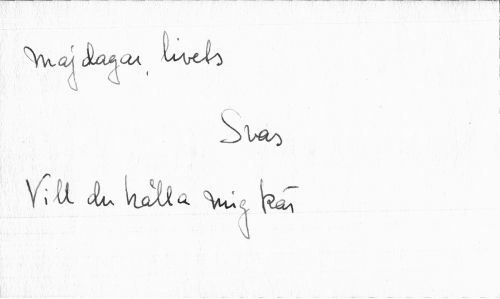 Majdagar, livets
Svas
Vill du hålla mig kär